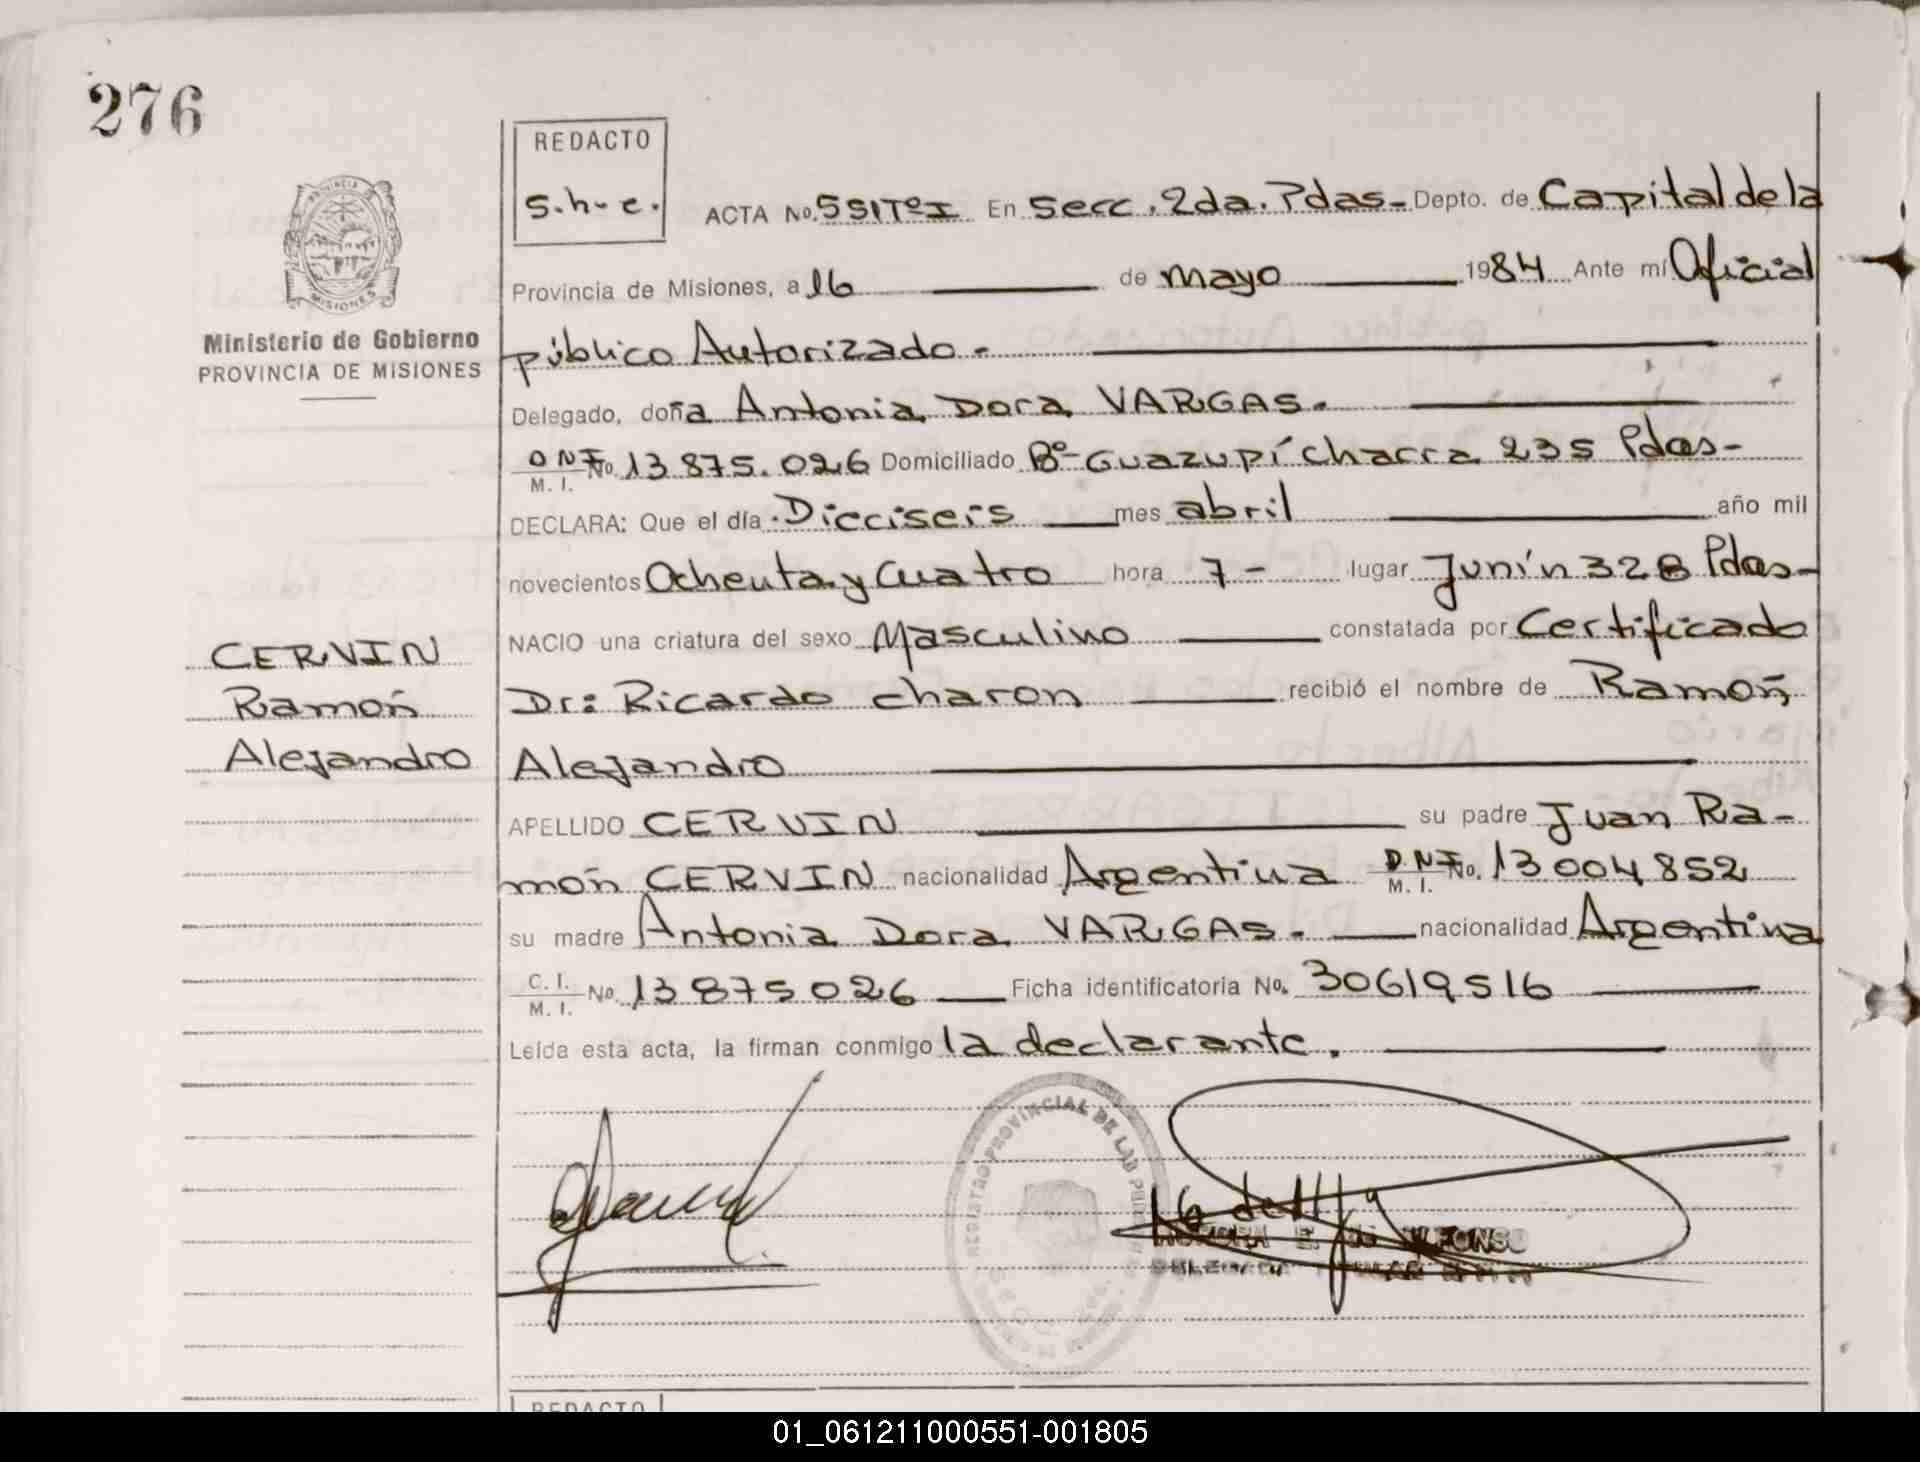 276
REDACTO
S.h-e.
ACTA No. 551Tº I En Secc. 2da. Pdas- Depto. de Capital de la
Provincia de Misiones, a 16 de mayo 1984 Ante mí Oficial
público Autorizado.-
Delegado, doña Antonia Dora VARGAS.
DNI No. 13875.026 Domiciliado Bº- Guazupí charra 235 Pdas-
M. I.
DECLARA: Que el día Dieciseis mes abril año mil
novecientos Ochenta y Cuatro hora 7- lugar Junín 328 Pdas-
NACIO una criatura del sexo Masculino constatada por Certificado
Dr: Ricardo charon recibió el nombre de Ramón
Alejandro
APELLIDO CERVIN su padre Juan Ra-
món CERVIN nacionalidad Argentina DNI No. 13004852
M. I.
su madre Antonia Dora VARGAS. nacionalidad Argentina
C. I. No. 13875026 Ficha identificatoria No. 30619516
M. I.
Leída esta acta, la firman conmigo la declarante.
PROVINCIA
MISIONES
Ministerio de Gobierno
PROVINCIA DE MISIONES
CERVIN
Ramón
Alejandro
REGISTRO PROVINCIAL DE LAS
E. de ALFONSO
REDACTO
01_061211000551-001805